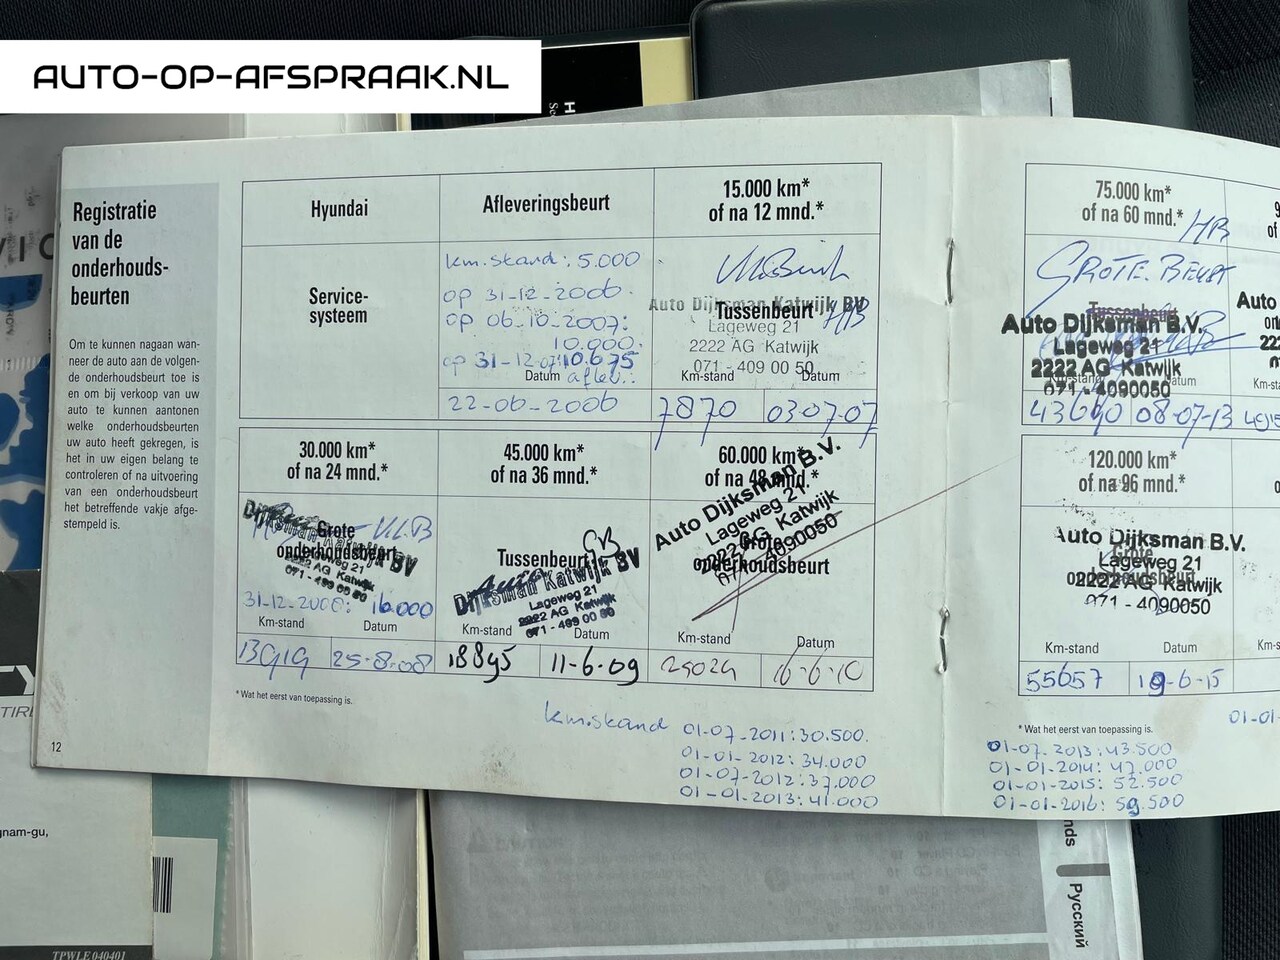 AUTO-OP-AFSPRAAK.NL
Registratie
van de
onderhouds-
beurten
Om te kunnen nagaan wan-
neer de auto aan de volgen-
de onderhoudsbeurt toe is
en om bij verkoop van uw
auto te kunnen aantonen
welke onderhoudsbeurten
uw auto heeft gekregen, is
het in uw eigen belang te
controleren of na uitvoering
van een onderhoudsbeurt
het betreffende vakje afge-
stempeld is.
12
Hyundai
Service-
systeem
Afleveringsbeurt
km.stand: 5.000
op 31-12-2006.
op 06-10-2007:
10.000.
op 31-12-07: 10.675
aflev.:
Datum
22-06-2006
15.000 km*
of na 12 mnd.*
Auto Dijksman Katwijk BV
Tussenbeurt HB
Lageweg 21
2222 AG Katwijk
071 - 409 00 50
Km-stand
Datum
7870
03-07-07
30.000 km*
of na 24 mnd.*
Grote
onderhoudsbeurt
Dijksman Katwijk BV
Lageweg 21
2222 AG Katwijk
071 - 409 00 50
31-12-2008: 16.000
Km-stand
Datum
13919
25-8-08
45.000 km*
of na 36 mnd.*
Tussenbeurt
Auto
Dijksman Katwijk BV
Lageweg 21
2222 AG Katwijk
071 - 409 00 50
Km-stand
Datum
18895
11-6-09
60.000 km*
of na 48 mnd.*
Auto Dijksman B.V.
Lageweg 21
2222 AG Katwijk
071 - 4090050
Grote
onderhoudsbeurt
Km-stand
Datum
25024
16-6-10
* Wat het eerst van toepassing is.
km.stand 01-07-2011: 30.500.
01-01-2012: 34.000
01-07-2012: 37.000
01-01-2013: 41.000
75.000 km*
of na 60 mnd.*
HB
GROTE BEURT
Tussenbeurt
Auto Dijksman B.V.
Lageweg 21
2222 AG Katwijk
071 - 4090050
Km-stand
Datum
43640
08-07-13
120.000 km*
of na 96 mnd.*
Auto Dijksman B.V.
Grote
Lageweg 21
onderhoudsbeurt
2222 AG Katwijk
071 - 4090050
Km-stand
Datum
55657
19-6-15
* Wat het eerst van toepassing is.
01-07-2013: 43.500
01-01-2014: 47.000
01-01-2015: 52.500
01-01-2016: 59.500
01-01-
Auto
Km-s
gnam-gu,
TPWLE 040401
Русский